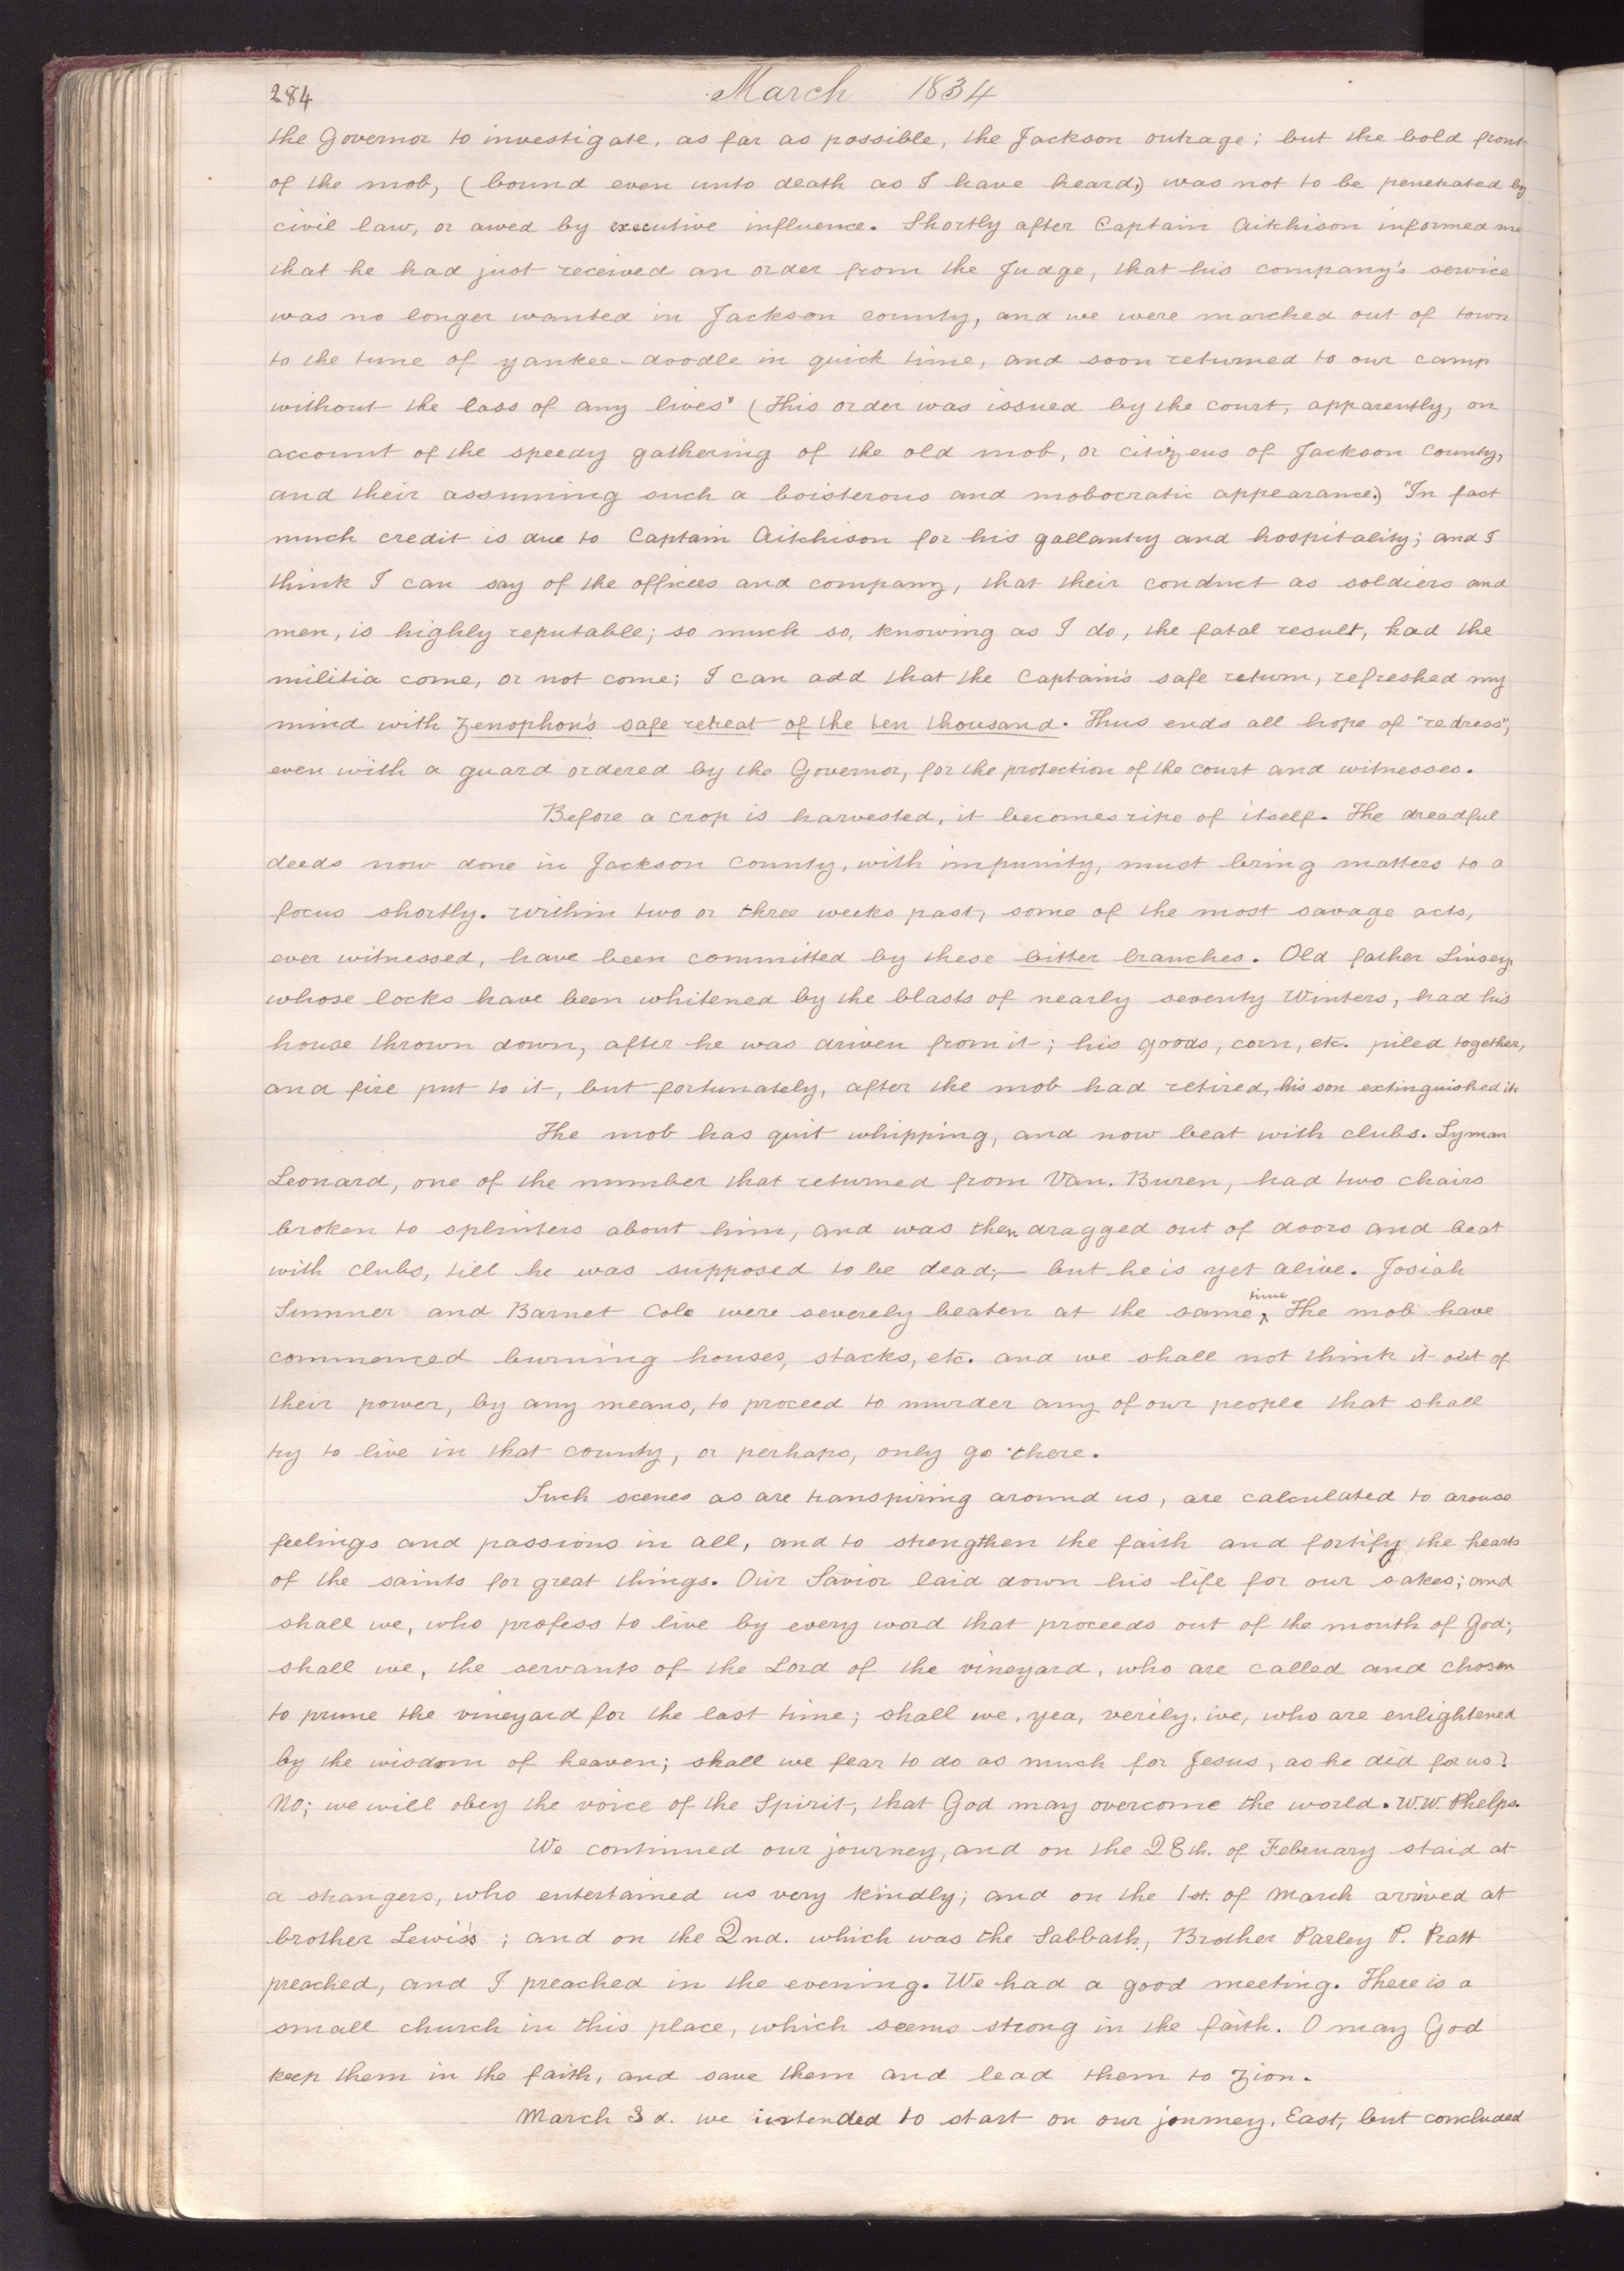 284
March 1834
the Governor to investigate, as far as possible, the Jackson outrage; but the bold front
of the mob, (bound even unto death as I have heard,) was not to be penetrated by
civil law, or awed by executive influence. Shortly after Captain Aitchison informed me
that he had just received an order from the Judge, that his company's service
was no longer wanted in Jackson county, and we were marched out of town
to the tune of yankee-doodle in quick time, and soon returned to our camp
without the loss of any lives" (This order was issued by the court, apparently, on
account of the speedy gathering of the old mob, or citizens of Jackson County,
and their assuming such a boisterous and mobocratic appearance.) "In fact
much credit is due to Captain Aitchison for his gallantry and hospitality; and I
think I can say of the officers and company, that their conduct as soldiers and
men, is highly reputable; so much so, knowing as I do, the fatal result, had the
militia come, or not come; I can add that the Captain's safe return, refreshed my
mind with Zenophon's safe retreat of the ten thousand. Thus ends all hope of "redress",
even with a guard ordered by the Governor, for the protection of the court and witnesses.
Before a crop is harvested, it becomes ripe of itself. The dreadful
deeds now done in Jackson County, with impunity, must bring matters to a
focus shortly. Within two or three weeks past, some of the most savage acts,
ever witnessed, have been committed by these bitter branches. Old father Linsey,
whose locks have been whitened by the blasts of nearly seventy Winters, had his
house thrown down, after he was driven from it; his goods, corn, etc. piled together,
and fire put to it, but fortunately, after the mob had retired, his son extinguished it.
The mob has quit whipping, and now beat with clubs. Lyman
Leonard, one of the number that returned from Van. Buren, had two chairs
broken to splinters about him, and was then dragged out of doors and beat
with clubs, till he was supposed to be dead;— but he is yet alive. Josiah
Sumner and Barnet Cole were severely beaten at the same time. The mob have
commenced burning houses, stacks, etc. and we shall not think it out of
their power, by any means, to proceed to murder any of our people that shall
try to live in that county, or perhaps, only go there.
Such scenes as are transpiring around us, are calculated to arouse
feelings and passions in all, and to strengthen the faith and fortify the hearts
of the saints for great things. Our Savior laid down his life for our sakes; and
shall we, who profess to live by every word that proceeds out of the mouth of God;
shall we, the servants of the Lord of the vineyard, who are called and chosen
to prune the vineyard for the last time; shall we, yea, verily, we, who are enlightened
by the wisdom of heaven; shall we fear to do as much for Jesus, as he did for us?
No; we will obey the voice of the Spirit, that God may overcome the world. W. W. Phelps.
We continued our journey, and on the 28th. of February staid at
a strangers, who entertained us very kindly; and on the 1st. of March arrived at
brother Lewis's; and on the 2nd. which was the Sabbath, Brother Parley P. Pratt
preached, and I preached in the evening. We had a good meeting. There is a
small church in this place, which seems strong in the faith. O may God
keep them in the faith, and save them and lead them to Zion.
March 3d. we intended to start on our journey, East, but concluded